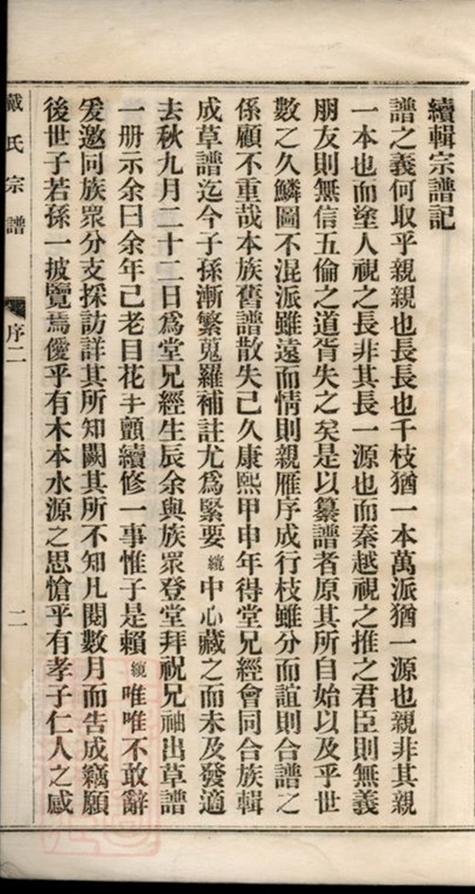 續輯宗譜記
譜之義何取乎親親也長長也千枝猶一本萬派猶一源也親非其親
一本也而塗人視之長非其長一源也而秦越視之推之君臣則無義
朋友則無信五倫之道胥失之矣是以纂譜者原其所自始以及乎世
數之久鱗圖不混派雖遠而情則親雁序成行枝雖分而誼則合譜之
係顧不重哉本族舊譜散失已久康熙甲申年得堂兄經會同合族輯
成草譜迄今子孫漸繁蒐羅補註尤爲緊要纘中心藏之而未及發適
去秋九月二十二日爲堂兄經生辰余與族眾登堂拜祝兄袖出草譜
一册示余曰余年已老目花手顫續修一事惟子是賴纘唯唯不敢辭
爰邀同族眾分支採訪詳其所知闕其所不知凡閱數月而告成竊願
後世子若孫一披覽焉僾乎有木本水源之思愴乎有孝子仁人之感
戴氏宗譜
序二
二